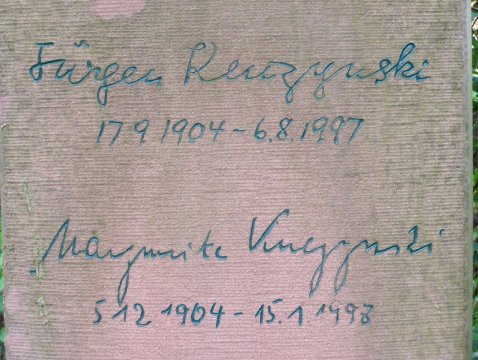 Jürgen Kuczynski
17 9 1904 - 6.8.1997
Marguerite Kuczynski
5 12 1904 - 15.1 1998